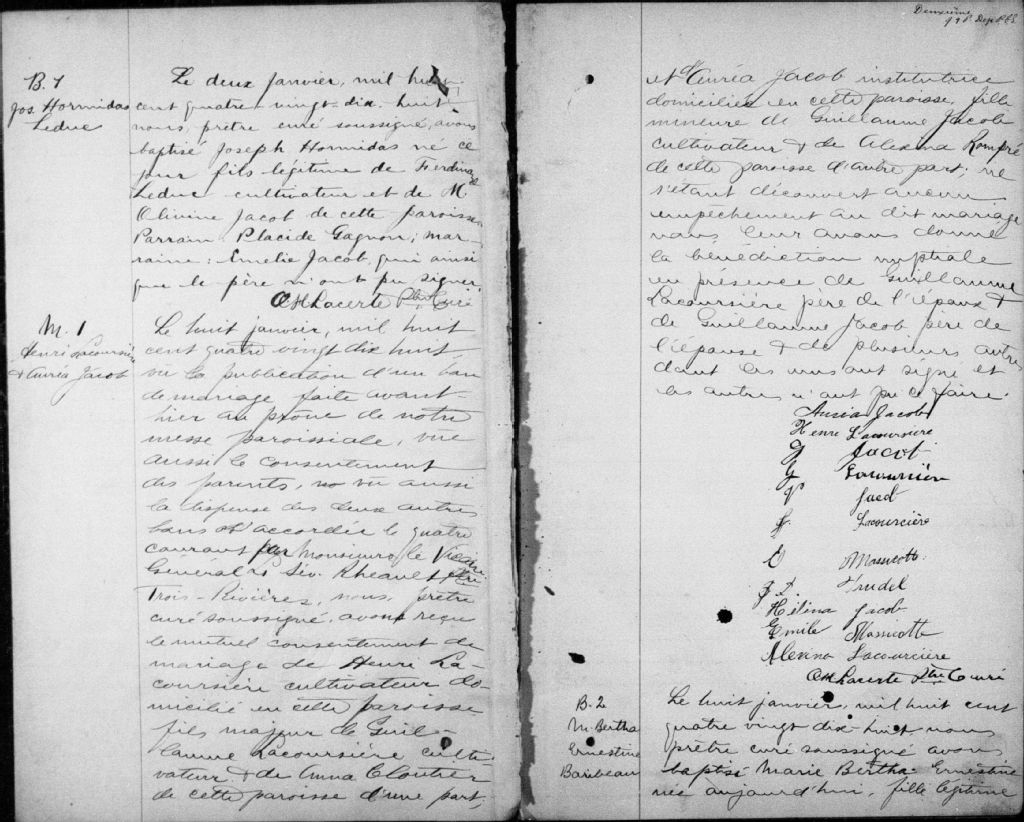 B. 1
Jos. Hormidas
Leduc
Le deux janvier, mil huit
cent quatre-vingt-dix-huit
nous, prêtre curé soussigné, avons
baptisé Joseph Hormidas né ce
jour fils légitime de Ferdinand
Leduc cultivateur et de M
Olivine Jacob de cette paroisse
Parrain Placide Gagnon; mar-
raine: Amelie Jacob, qui ainsi
que le père n'ont pu signer.
Lacerte Ptre Curé
M. 1
Henri Lacoursière
& Auréa Jacob
Le huit janvier, mil huit
cent quatre vingt dix huit
vu la publication d'un ban
de mariage faite avant-
hier au prône de notre
messe paroissiale, vue
aussi le consentement
des parents, vu aussi
la dispense des deux autres
bans accordée le quatre
courant par Monsieur le Vicaire
Général Sév. Rheault,
Trois-Rivières, nous, prêtre
curé soussigné, avons reçu
le mutuel consentement de
mariage de Henri La-
coursière cultivateur do-
micilié en cette paroisse
fils majeur de Guil-
laume Lacoursière culti-
vateur & de Anna Cloutier
de cette paroisse d'une part;
Deuxième
et d'Auréa Jacob institutrice
domiciliée en cette paroisse, fille
mineure de Guillaume Jacob
cultivateur & de Alexina Rompré
de cette paroisse d'autre part; ne
s'étant découvert aucun
empêchement au dit mariage
nous leur avons donné
la bénédiction nuptiale
en présence de Guillaume
Lacoursière père de l'époux &
de Guillaume Jacob père de
l'épouse & de plusieurs autres
dont les uns ont signé et
les autres n'ont pu le faire.
Auréa Jacob
Henri Lacoursière
G Jacob
G Lacoursière
Jacob
Lacourcière
Massicotte
Trudel
Hélina Jacob
Emile Massicotte
Alexina Lacourcière
Lacerte Ptre Curé
B. 2
M. Bertha
Ernestine
Baribeau
Le huit janvier, mil huit cent
quatre vingt dix-huit nous
prêtre curé soussigné avons
baptisé Marie Bertha Ernestine
née aujourd'hui, fille légitime